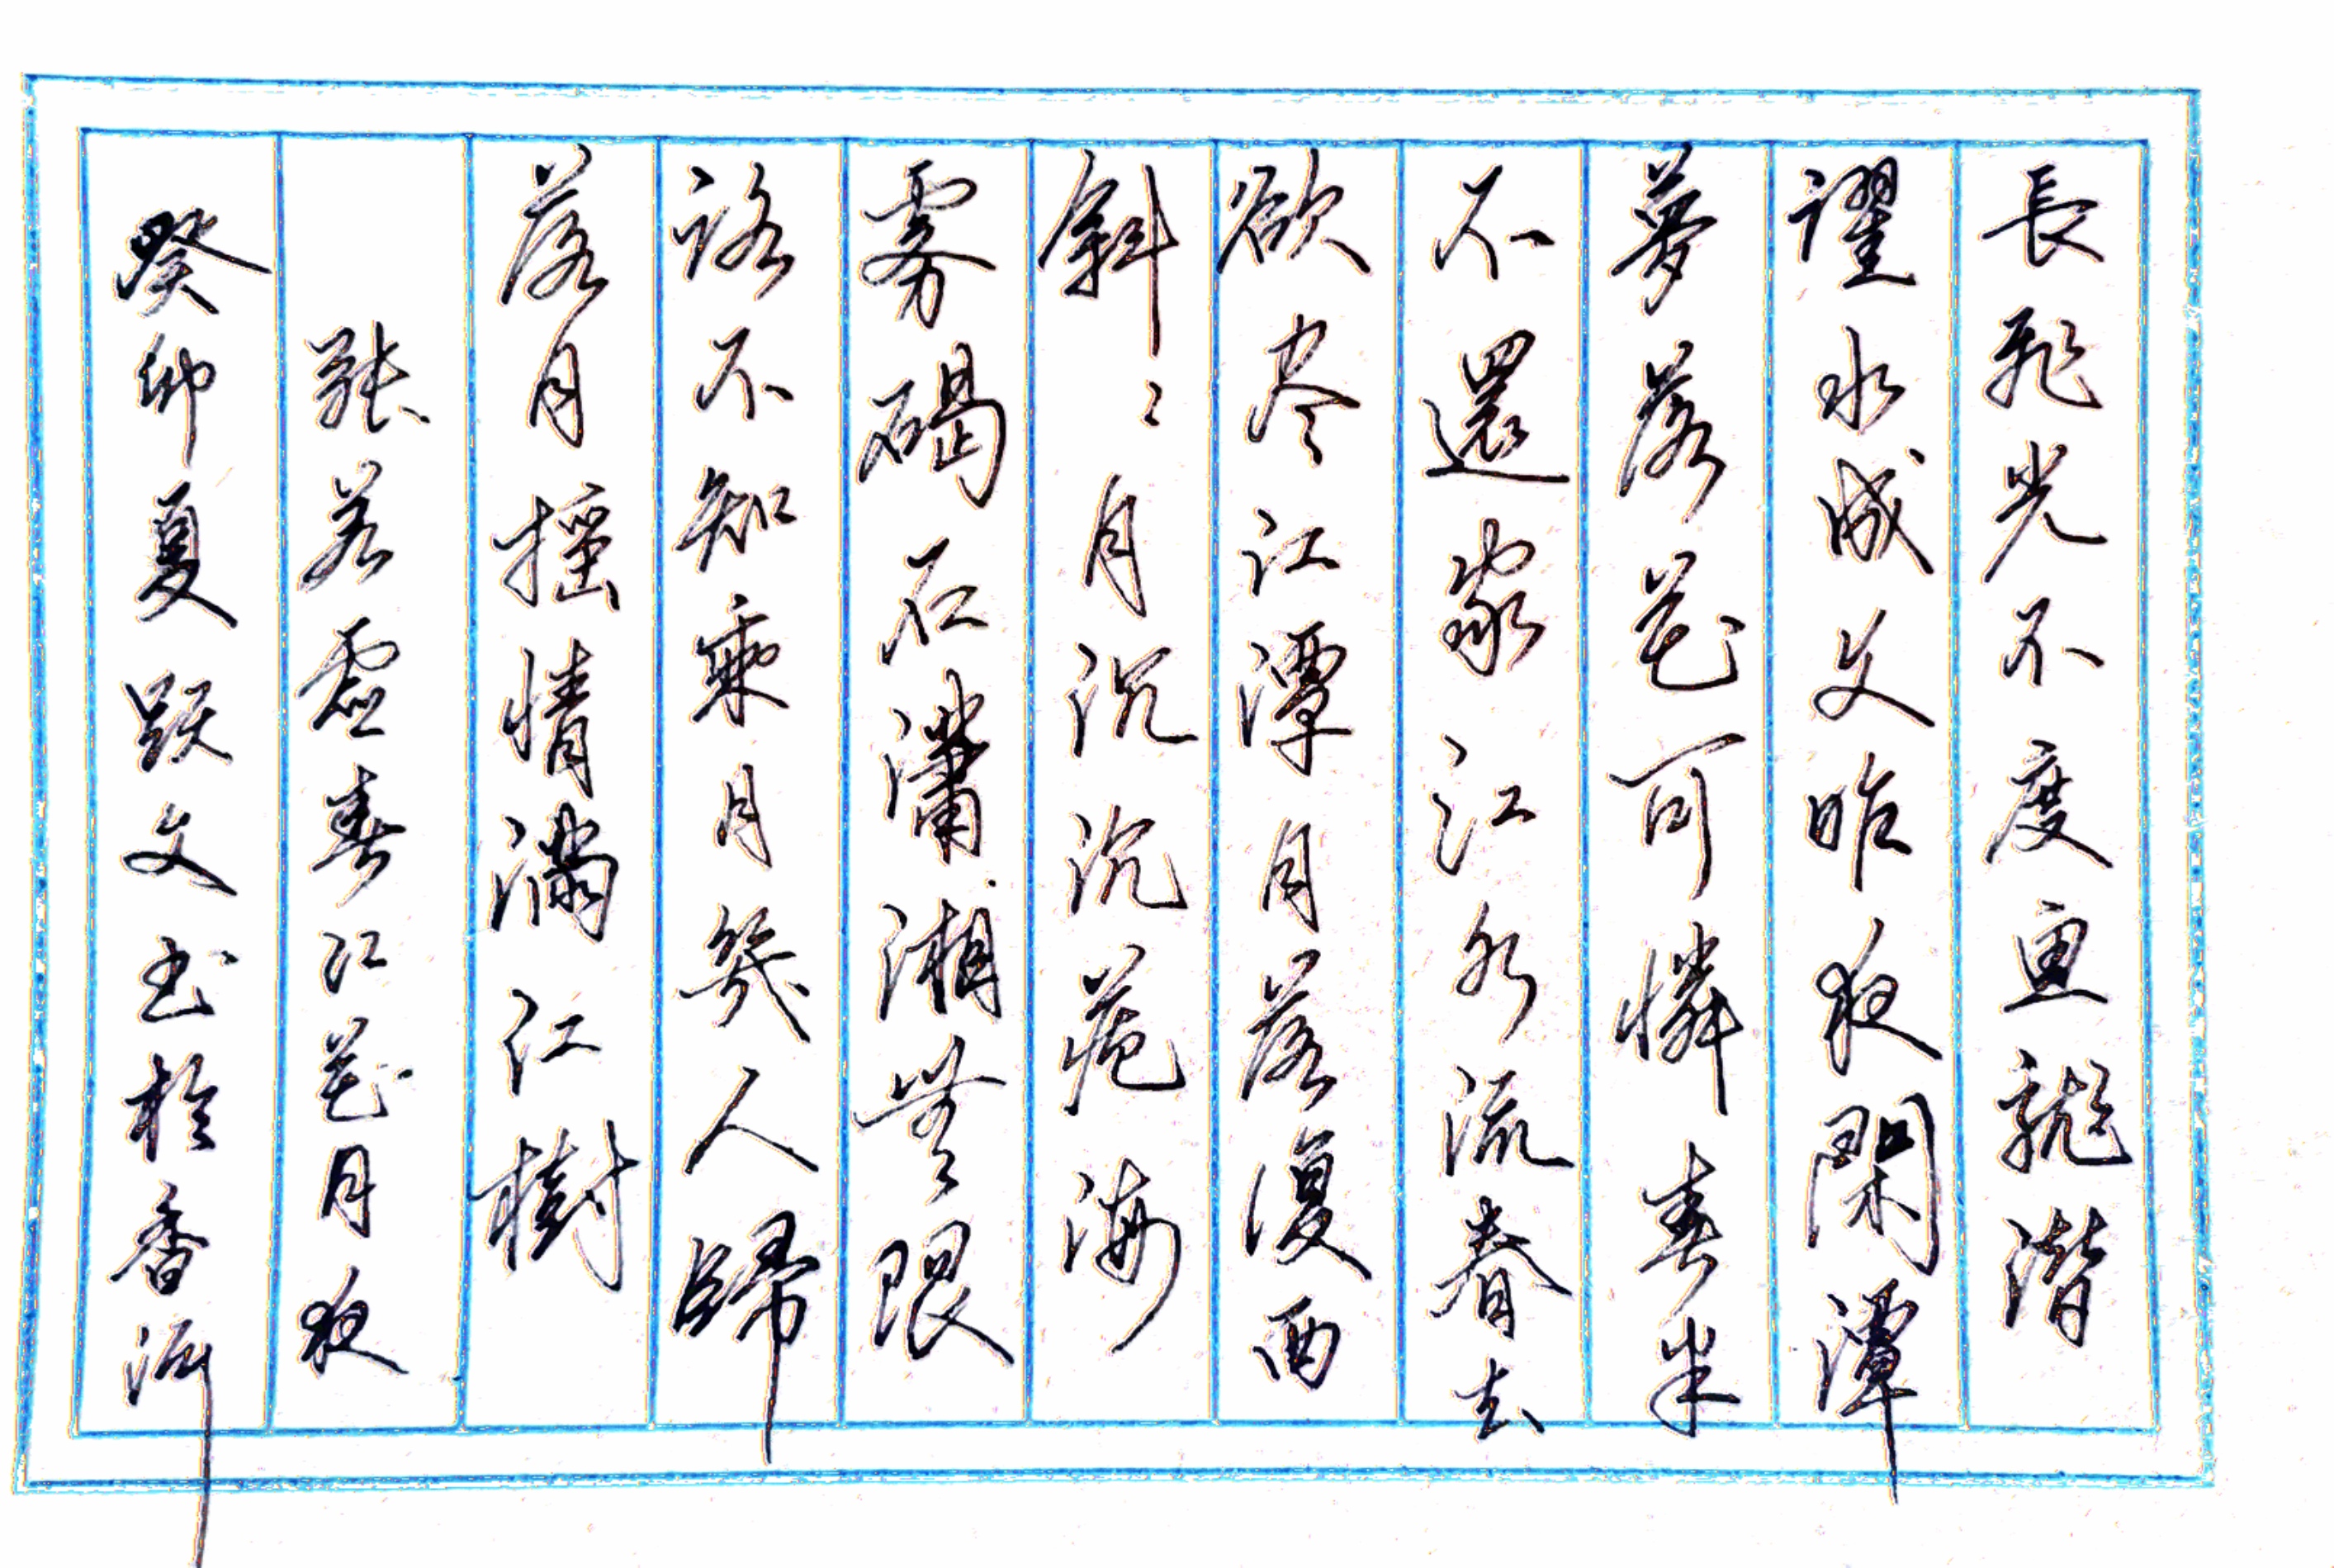 長飛光不度魚龍潛
躍水成文昨夜閑潭
夢落花可憐春半
不還家江水流春去
欲尽江潭月落復西
斜〻月沉沉藏海
雾碣石瀟湘無限
路不知乘月幾人歸
落月摇情滿江樹
張若虛春江花月夜
癸卯夏跃文书於香河